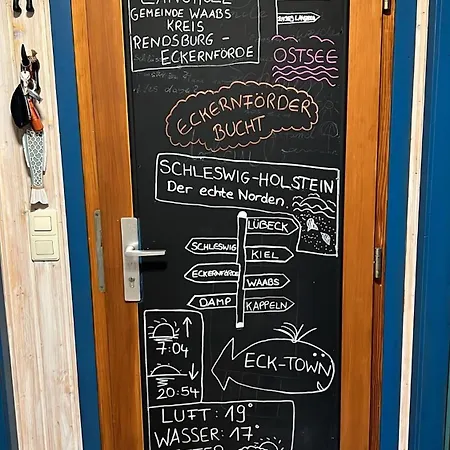 GEMEINDE WAABS
KREIS
RENDSBURG-
ECKERNFÖRDE
OSTSEE
ECKERNFÖRDER
BUCHT
SCHLESWIG-HOLSTEIN
Der echte Norden.
LÜBECK
SCHLESWIG
KIEL
ECKERNFÖRDE
WAABS
DAMP
KAPPELN
7:04
20:54
ECK-TOWN
LUFT: 19°
WASSER: 17°